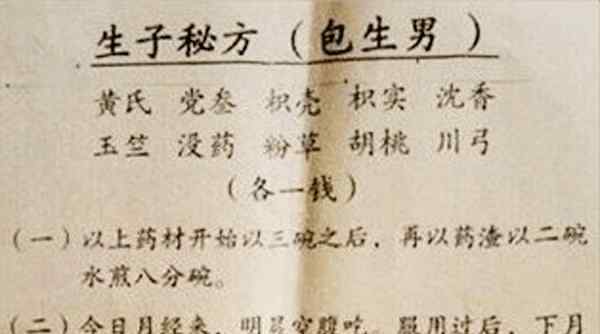 生子秘方（包生男）
黄氏 党叁 枳壳 枳实 沈香
玉竺 没药 粉草 胡桃 川弓
（各一钱）
（一）以上药材开始以三碗之后，再以药渣以二碗
水煎八分碗。
（二）今日月经来，明晨空腹吃。服用过后，下月